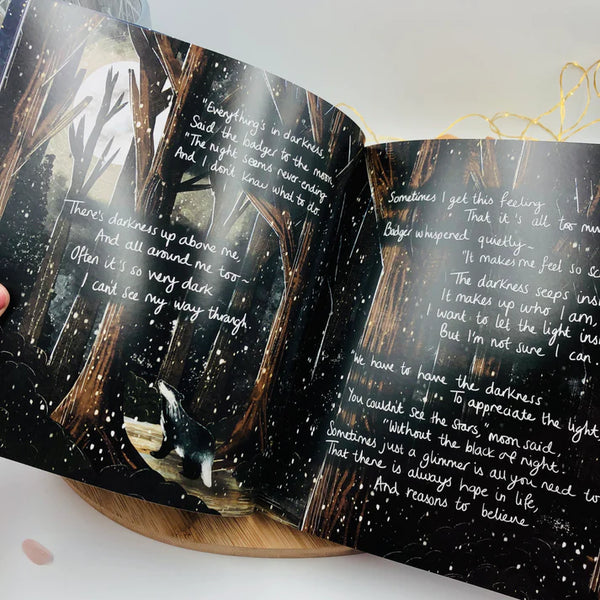 "Everything's in darkness,
Said the badger to the moon
"The night seems never-ending
And I don't know what to do.
There's darkness up above me
And all around me too~
Often it's so very dark
I can't see my way through.
Sometimes I get this feeling
That it's all too
Badger whispered quietly~
"It makes me feel so
The darkness seeps
It makes up who I am,
I want to let the light
But I'm not sure I can
"We have to have the darkness
To appreciate the light,
You couldn't see the stars," moon said,
"Without the black of night.
Sometimes just a glimmer is all you need to
That there is always hope in life,
And reasons to believe